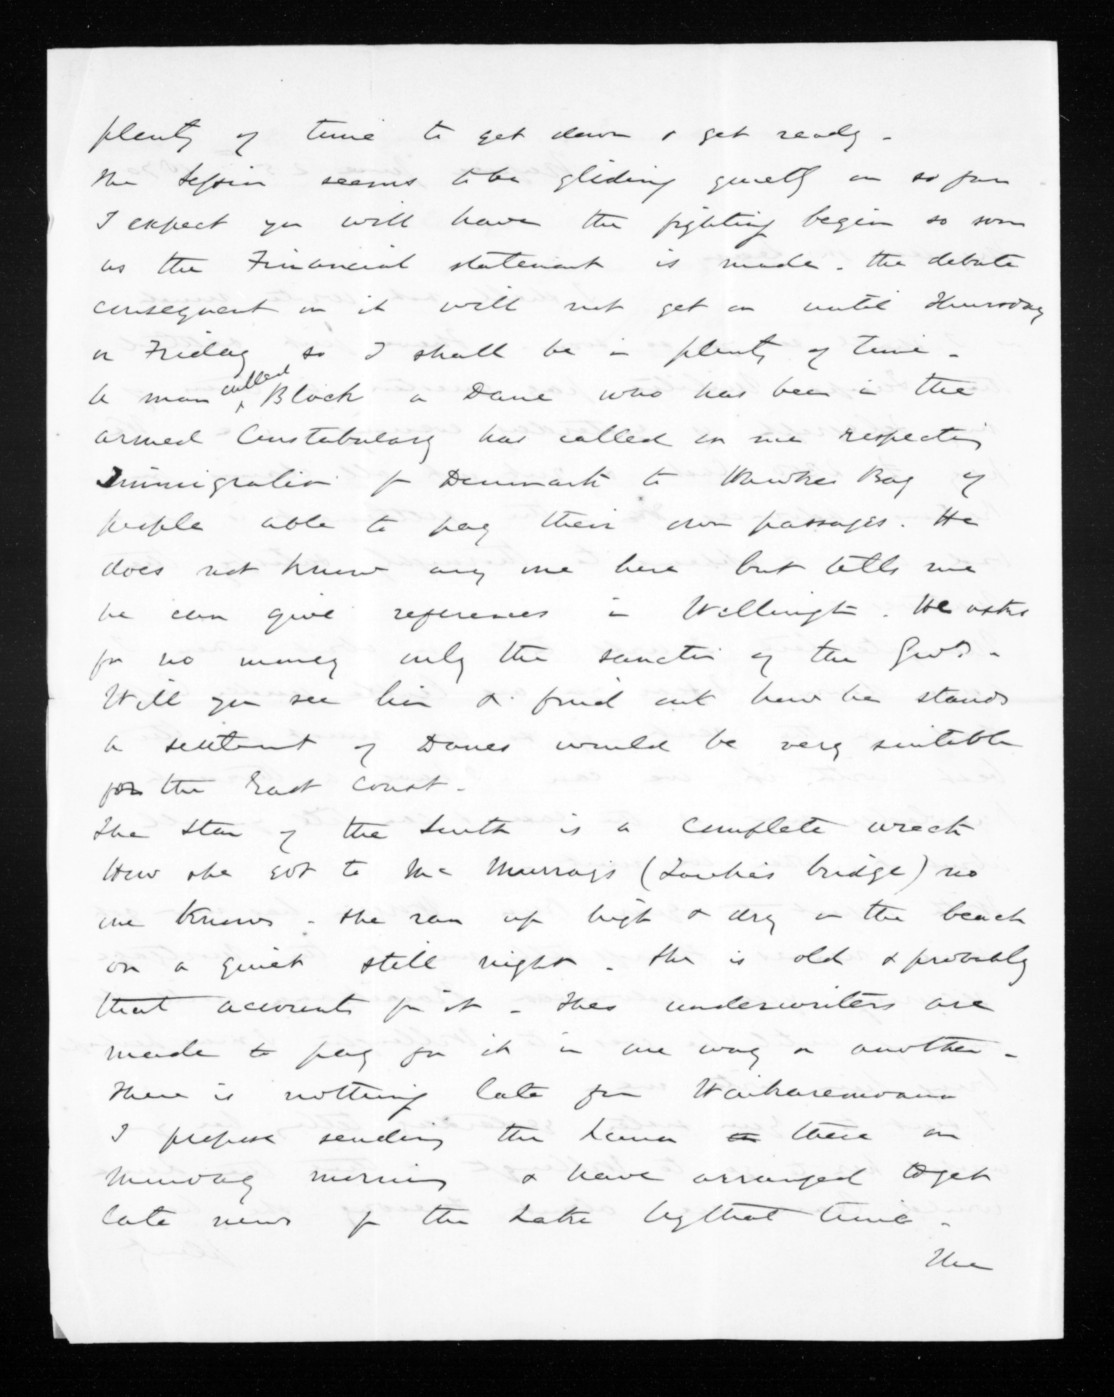 plenty of time to get down & get ready -
The Session seems to be gliding quietly on so far
I expect you will have the fighting begin so soon
as the Financial statement is made. the debate
consequent on it will not get on until Thursday
or Friday so I shall be in plenty of time -
A man called Block a Dane who has been in the
armed Constabulary has called on me respecting
Immigration fr Denmark to Hawkes Bay of
people able to pay their own passages. He
does not know any one here but tells me
he can give references in Wellington. He asks
for no money only the sanction of the Govt. -
Will you see him & find out how he stands
A settlement of Danes would be very suitable
for the East Coast -
The Star of the South is a complete wreck
How she got to McMurrays ( bridge) no
one knows - She ran up high & dry on the beach
on a quiet still night - She is old & probably
that accounts for it - The underwriters are
made to pay for it in one way or another -
There is nothing late from Waikaremoana
I propose sending the Luna there on
Monday morning & have arranged to get
late news fr the Lake by that time -
The